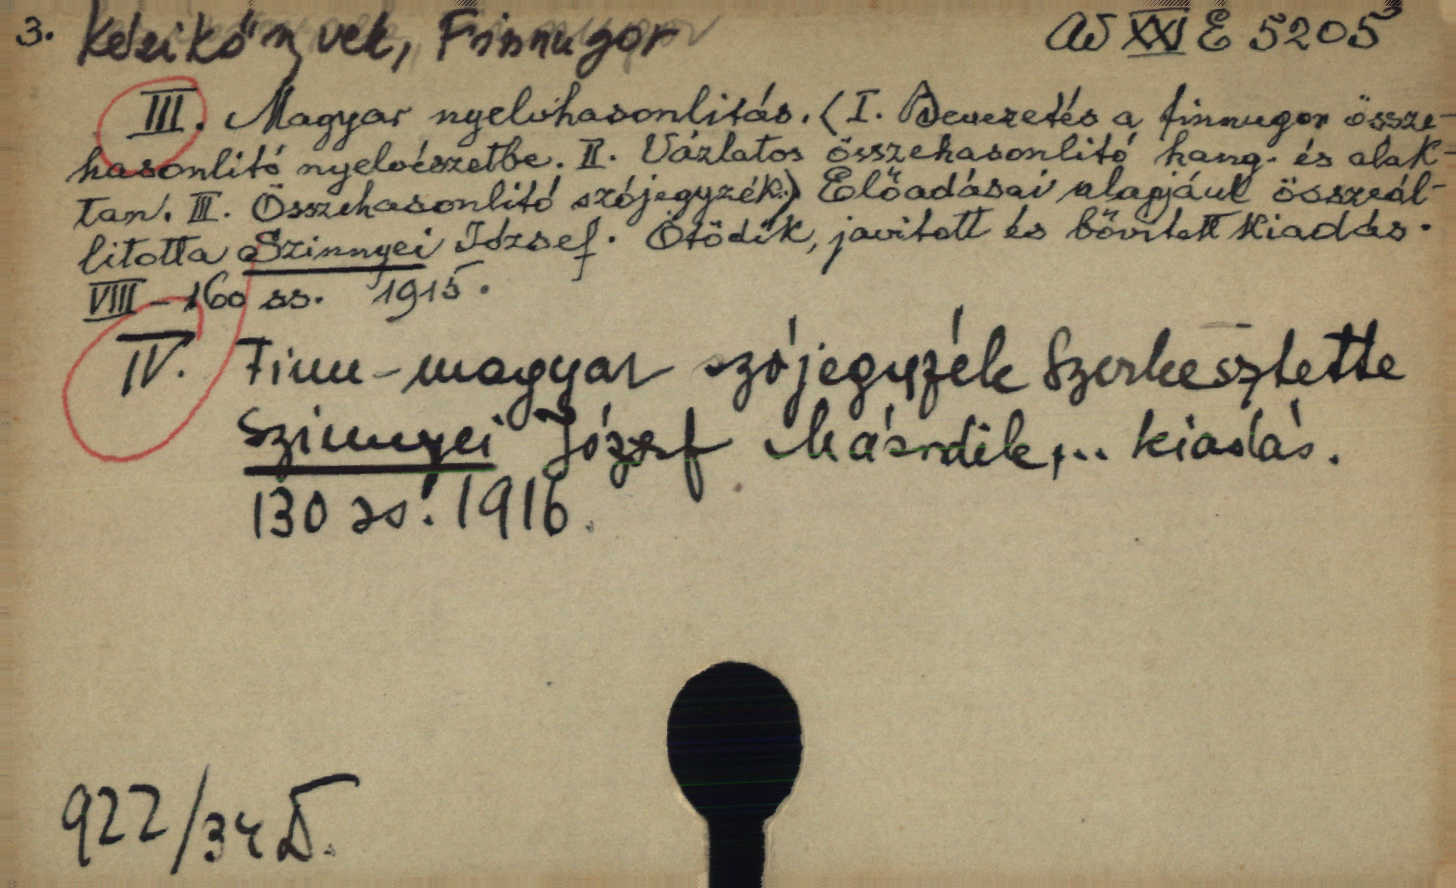 3. Kézikönyvek, Finnugor AD XXI E 5205
III. Magyar nyelvhasonlitás. (I. Bevezetés a finnugor össze-
hasonlitó nyelvészetbe. II. Vázlatos összehasonlitó hang- és alak-
tan. III. Összehasonlitó szójegyzék.) Előadásai alapjául összeál-
litotta Szinnyei József. Ötödik, javitott és bővitett kiadás.
VIII - 160 ss. 1915.
IV. Finn-magyar szójegyzék Szerkesztette
Szinnyei József Második,... kiadás.
130 ss. 1916.
922/34